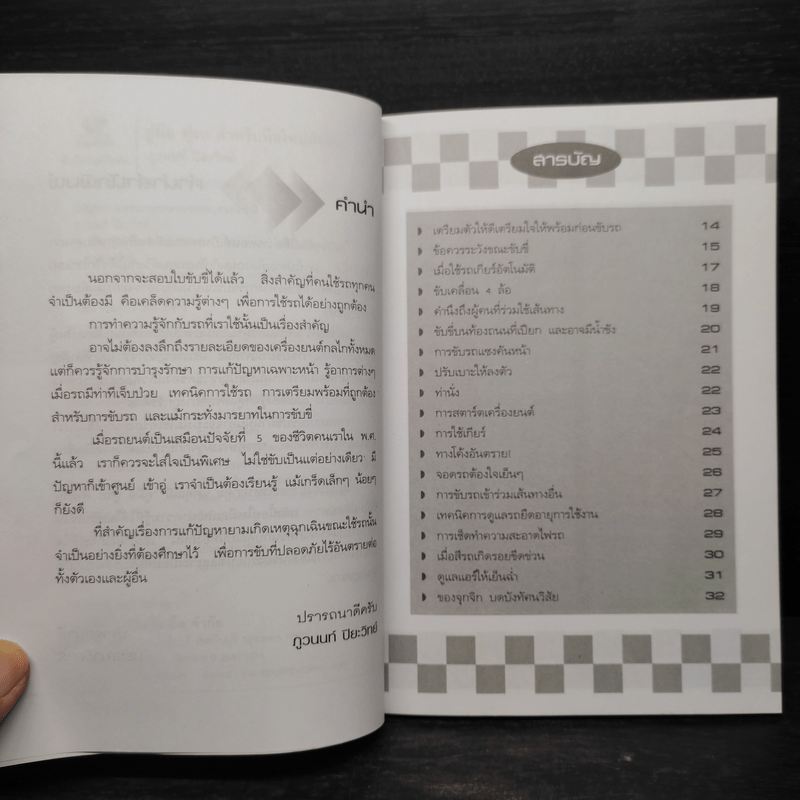 คำนำ
นอกจากจะสอบใบขับขี่ได้แล้ว สิ่งสำคัญที่คนใช้รถทุกคน
จำเป็นต้องมี คือเคล็ดความรู้ต่างๆ เพื่อการใช้รถได้อย่างถูกต้อง
การทำความรู้จักกับรถที่เราใช้นั้นเป็นเรื่องสำคัญ
อาจไม่ต้องลงลึกถึงรายละเอียดของเครื่องยนต์กลไกทั้งหมด
แต่ก็ควรรู้จักการบำรุงรักษา การแก้ปัญหาเฉพาะหน้า รู้อาการต่างๆ
เมื่อรถมีท่าทีเจ็บป่วย เทคนิคการใช้รถ การเตรียมพร้อมที่ถูกต้อง
สำหรับการขับรถ และแม้กระทั่งมารยาทในการขับขี่
เมื่อรถยนต์เป็นเสมือนปัจจัยที่ 5 ของชีวิตคนเราใน พ.ศ.
นี้แล้ว เราก็ควรจะใส่ใจเป็นพิเศษ ไม่ใช่ขับเป็นแต่อย่างเดียว มี
ปัญหาก็เข้าศูนย์ เข้าอู่ เราจำเป็นต้องเรียนรู้ แม้เกร็ดเล็กๆ น้อยๆ
ก็ยังดี
ที่สำคัญเรื่องการแก้ปัญหายามเกิดเหตุฉุกเฉินขณะใช้รถนั้น
จำเป็นอย่างยิ่งที่ต้องศึกษาไว้ เพื่อการขับที่ปลอดภัยไร้อันตรายต่อ
ทั้งตัวเองและผู้อื่น
ปรารถนาดีครับ
ภูวนนท์ ปิยะวิทย์
สารบัญ
เตรียมตัวให้ดีเตรียมใจให้พร้อมก่อนขับรถ 14
ข้อควรระวังขณะขับขี่ 15
เมื่อใช้รถเกียร์อัตโนมัติ 17
ขับเคลื่อน 4 ล้อ 18
คำนึงถึงผู้คนที่ร่วมใช้เส้นทาง 19
ขับขี่บนท้องถนนที่เปียก และอาจมีน้ำขัง 20
การขับรถแซงคันหน้า 21
ปรับเบาะให้ลงตัว 22
ท่านั่ง 22
การสตาร์ตเครื่องยนต์ 23
การใช้เกียร์ 24
ทางโค้งอันตราย! 25
จอดรถต้องใจเย็นๆ 26
การขับรถเข้าร่วมเส้นทางอื่น 27
เทคนิคการดูแลรถยืดอายุการใช้งาน 28
การเช็ดทำความสะอาดไฟรถ 29
เมื่อสีรถเกิดรอยขีดข่วน 30
ดูแลแอร์ให้เย็นฉ่ำ 31
ของจุกจิก บดบังทัศนวิสัย 32